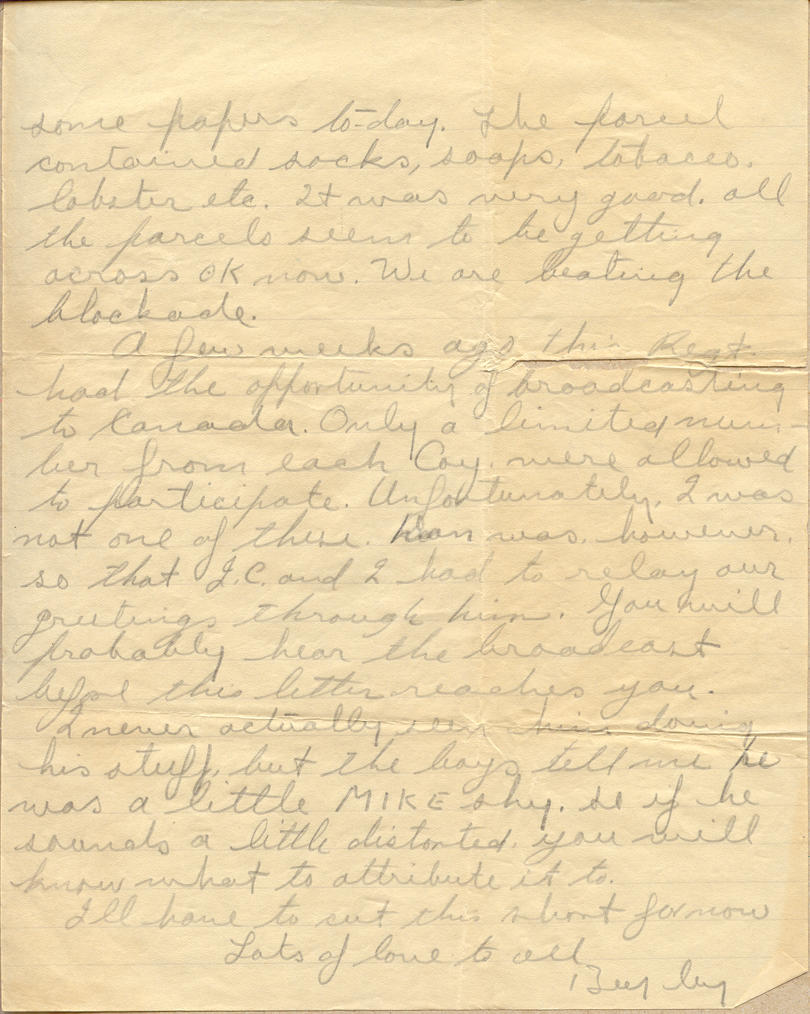 some papers to-day. The parcel
contained socks, soaps, tobacco.
lobster etc. It was very good. all
the parcels seem to be getting
across OK now. We are beating the
blockade.
A few weeks ago this Regt.
had the opportunity of broadcasting
to Canada. Only a limited num-
ber from each Coy. were allowed
to participate. Unfortunately, I was
not one of these. Don was, however,
so that J.C. and I had to relay our
greetings through him. You will
probably hear the broadcast
before this letter reaches you.
I never actually seen him doing
his stuff, but the boys tell me he
was a little MIKE shy. so if he
sounds a little distorted, you will
know what to attribute it to.
I'll have to cut this short for now
Lots of love to all